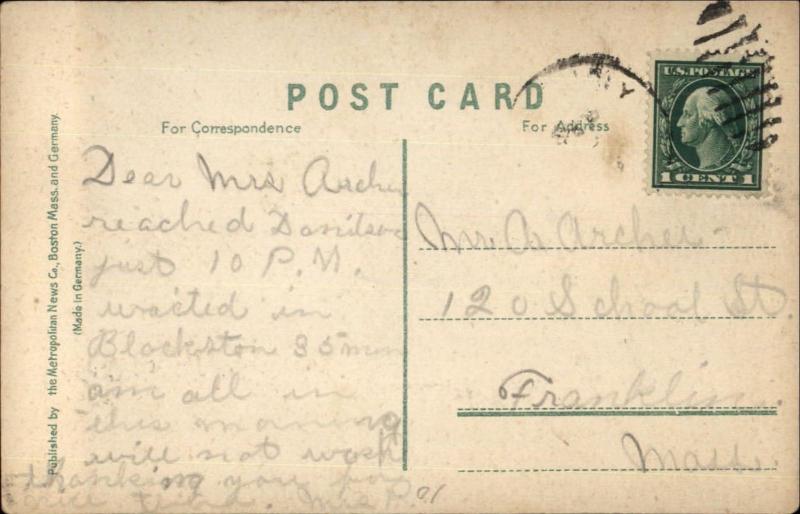 POST CARD
For Correspondence
For Address
U.S. POSTAGE
1 CENT 1
Published by the Metropolitan News Co., Boston Mass. and Germany.
(Made in Germany.)
Dear Mrs Archer
reached
just 10 P.M.
waited in
Blackston 35 min
am all in
this morning
will not wash
thanking you for
Mrs P.
01
Mr. A Archer
120 School St.
Franklin.
Mass.